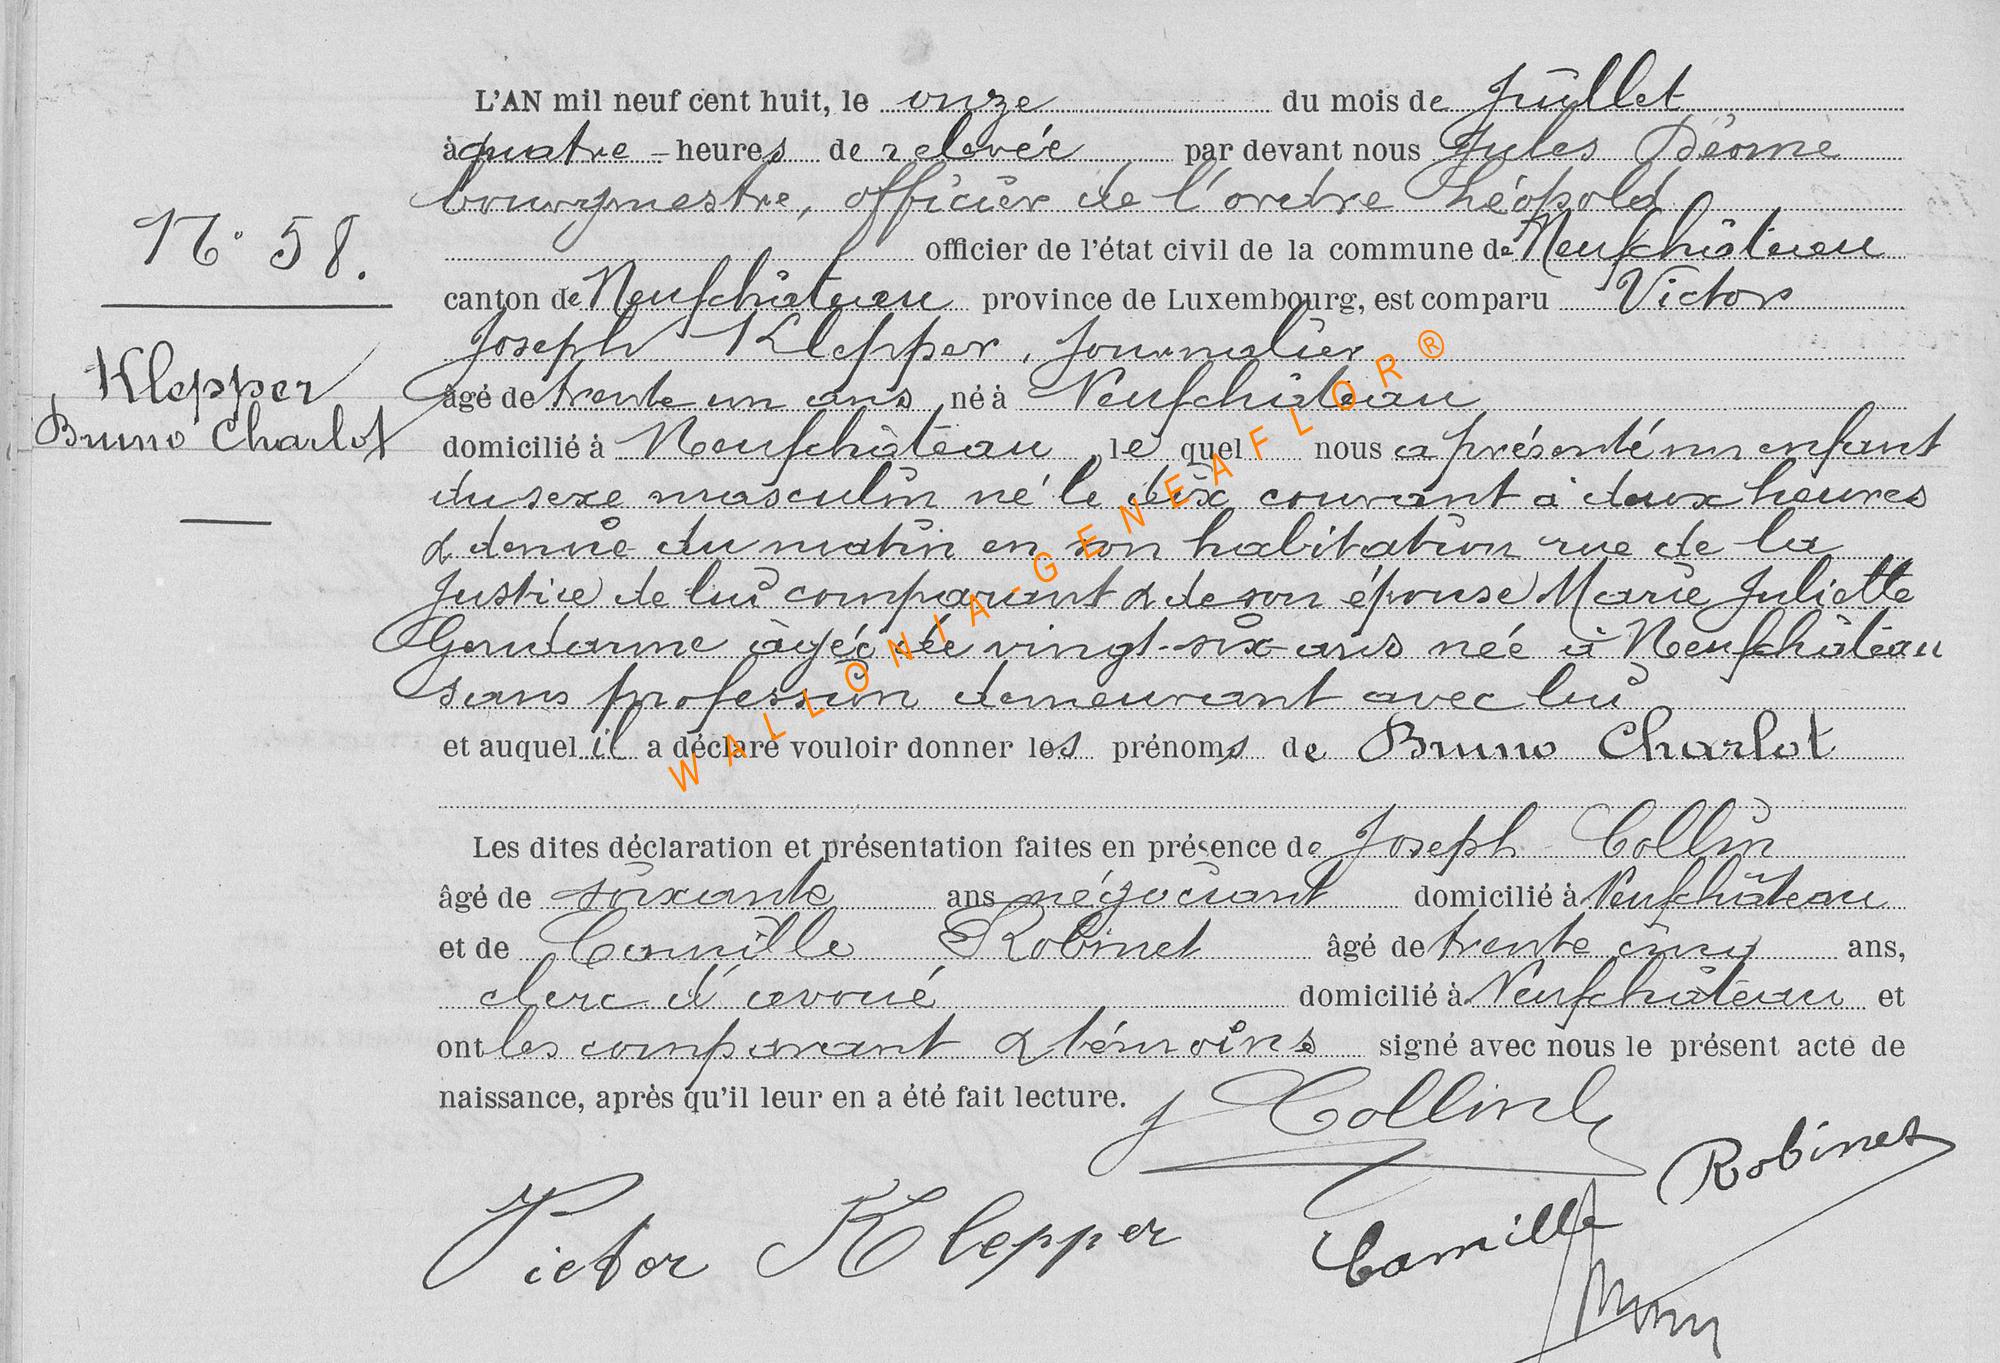 L'AN mil neuf cent huit, le onze du mois de Juillet
à quatre heures de relevée par devant nous Jules Déome
bourgmestre, officier de l'ordre Léopold
N° 58.
officier de l'état civil de la commune de Neufchâteau
canton de Neufchâteau province de Luxembourg, est comparu Victor
Joseph Klepper, journalier
Klepper
Bruno Charlot
âgé de trente un ans né à Neufchâteau
domicilié à Neufchâteau, le quel nous a présenté un enfant
du sexe masculin né le dix courant à deux heures
& demie du matin en son habitation rue de la
Justice de lui comparant & de son épouse Marie Juliette
Gendarme âgée de vingt-six ans née à Neufchâteau
sans profession demeurant avec lui
et auquel il a déclaré vouloir donner les prénoms de Bruno Charlot
Les dites déclaration et présentation faites en présence de Joseph Collin
âgé de soixante ans négociant domicilié à Neufchâteau
et de Camille Robinet âgé de trente cinq ans,
clerc d'avoué domicilié à Neufchâteau et
ont les comparant & témoins signé avec nous le présent acte de
naissance, après qu'il leur en a été fait lecture.
J Collin
Victor Klepper
Camille Robinet
WALLONIA-GENEAFLOR®